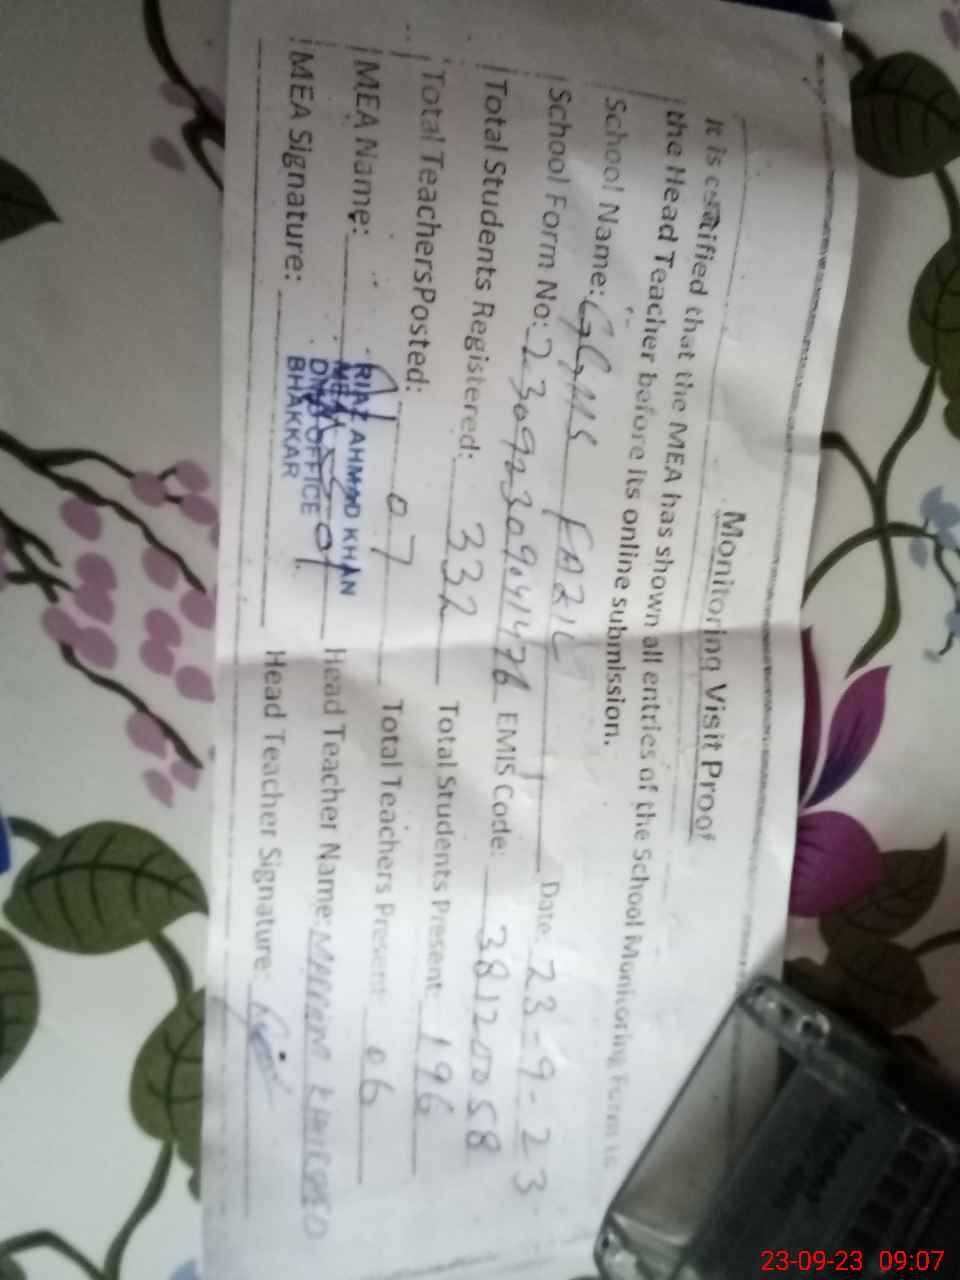 Monitoring Visit Proof
It is certified that the MEA has shown all entries of the School Monitoring Form to
the Head Teacher before its online submission.
School Name: GGMS FAZIL Date: 23-9-23
School Form No: EMIS Code: 38120058
Total Students Registered: 332 Total Students Present: 196
Total TeachersPosted: 07 Total Teachers Present: 06
MEA Name: RIAZ AHMAD KHAN Head Teacher Name: MARYAM KHURSHED
MEA
OFFICE
BHAKKAR
MEA Signature: Head Teacher Signature:
23-09-23 09:07